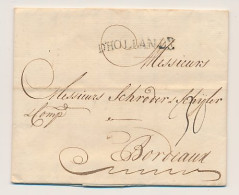 D'HOLLANDE
Messieurs
Messieurs Schröder & Schÿler
& Comp
a
Bordeaux